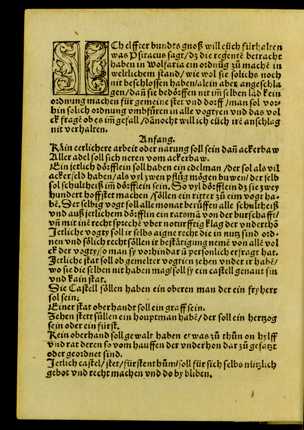 ICh elffter bundts gnoß will eüch fürhalten
was Psitacus sagt/ dz die regentẽ betracht
haben in Wolfaria ein ordnũg zů machẽ in
weltlichem stand/ wie wol sie solichs noch
nit beschlossen haben/ alein aber angeschla-
gen/ dañ sie bedörffen nit im selben läd kein
ordnung machen für gemeine stet vnd dorff / man sol vor-
hin solich ordnung vmbfüren in alle vogtyen vnd das vol
ck fragẽ ob es im gefall/ dänocht will ich eüch irẽ anschlag
nit verhalten.
Anfang.
Kain eerlichere arbeit oder narung soll sein dañ ackerbaw
Aller adel soll sich neren vom ackerbaw.
Ein ietlich dörfflin soll haben ein edelman / der sol als vil
acker feld haben/ als vyl zwen pflüg mögen buwen/ der selb
sol schultheiß im dörfflein sein. So vyl dörfflein dz sie zwey
hundert hoffstet machen / söllen ein ritter zů eim vogt ha-
bẽ. Der selbig vogt soll alle monat berüffen alle schultheiß
vnd auß ietlichem dörfflin ein ratsman von der burschafft/
vñ mit inẽ recht sprechẽ vber notturfftig klag der vnderthõ
Jetliche vogty soll ir selbs aigne recht die in nutz sind/ ord-
nen vnd sölich recht söllen in bestätigung nemẽ von alle vol
ck der vogty/ so man sy vorhin drũ personlich erfragt hat.
Jetliche stat soll ob gemelter vogtyen zehen vnder ir habẽ/
wo sie die selben nit haben mag/ soll sy ein castell genant sin
vnd kain stat.
Die Castell söllen haben ein oberen man der ein fry herr
sol sein.
Einer stat oberhandt soll ein graff sein.
Zehen stett süllen ein houptman habẽ/ der soll ein hertzog
sein oder ein fürst.
Kein oberhand soll gewalt haben etwas zů thůn on hilff
vnd rat deren so vom hauffen der vnderthon dar zů gesatzt
oder geordnet sind.
Jetlich castel/ stet/ fürstenthům/ soll für sich selbs nützlich
gebot vnd recht machen vnd do by bliben.